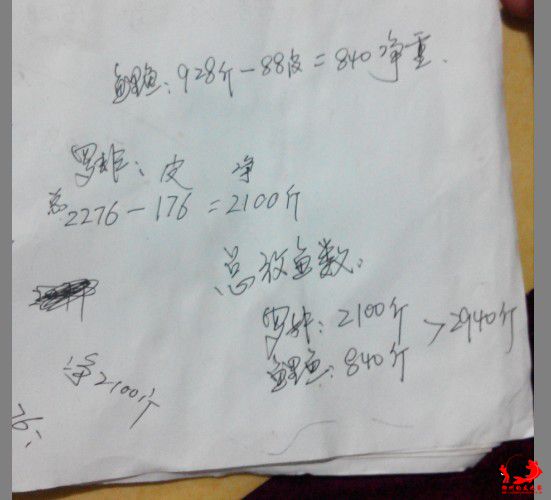 鲤鱼：928斤－88皮＝840净重.
罗非：皮 净
总2276－176＝2100斤
总放鱼数：
罗非：2100斤
>2940斤
鲤鱼：840斤
净2100斤
76；